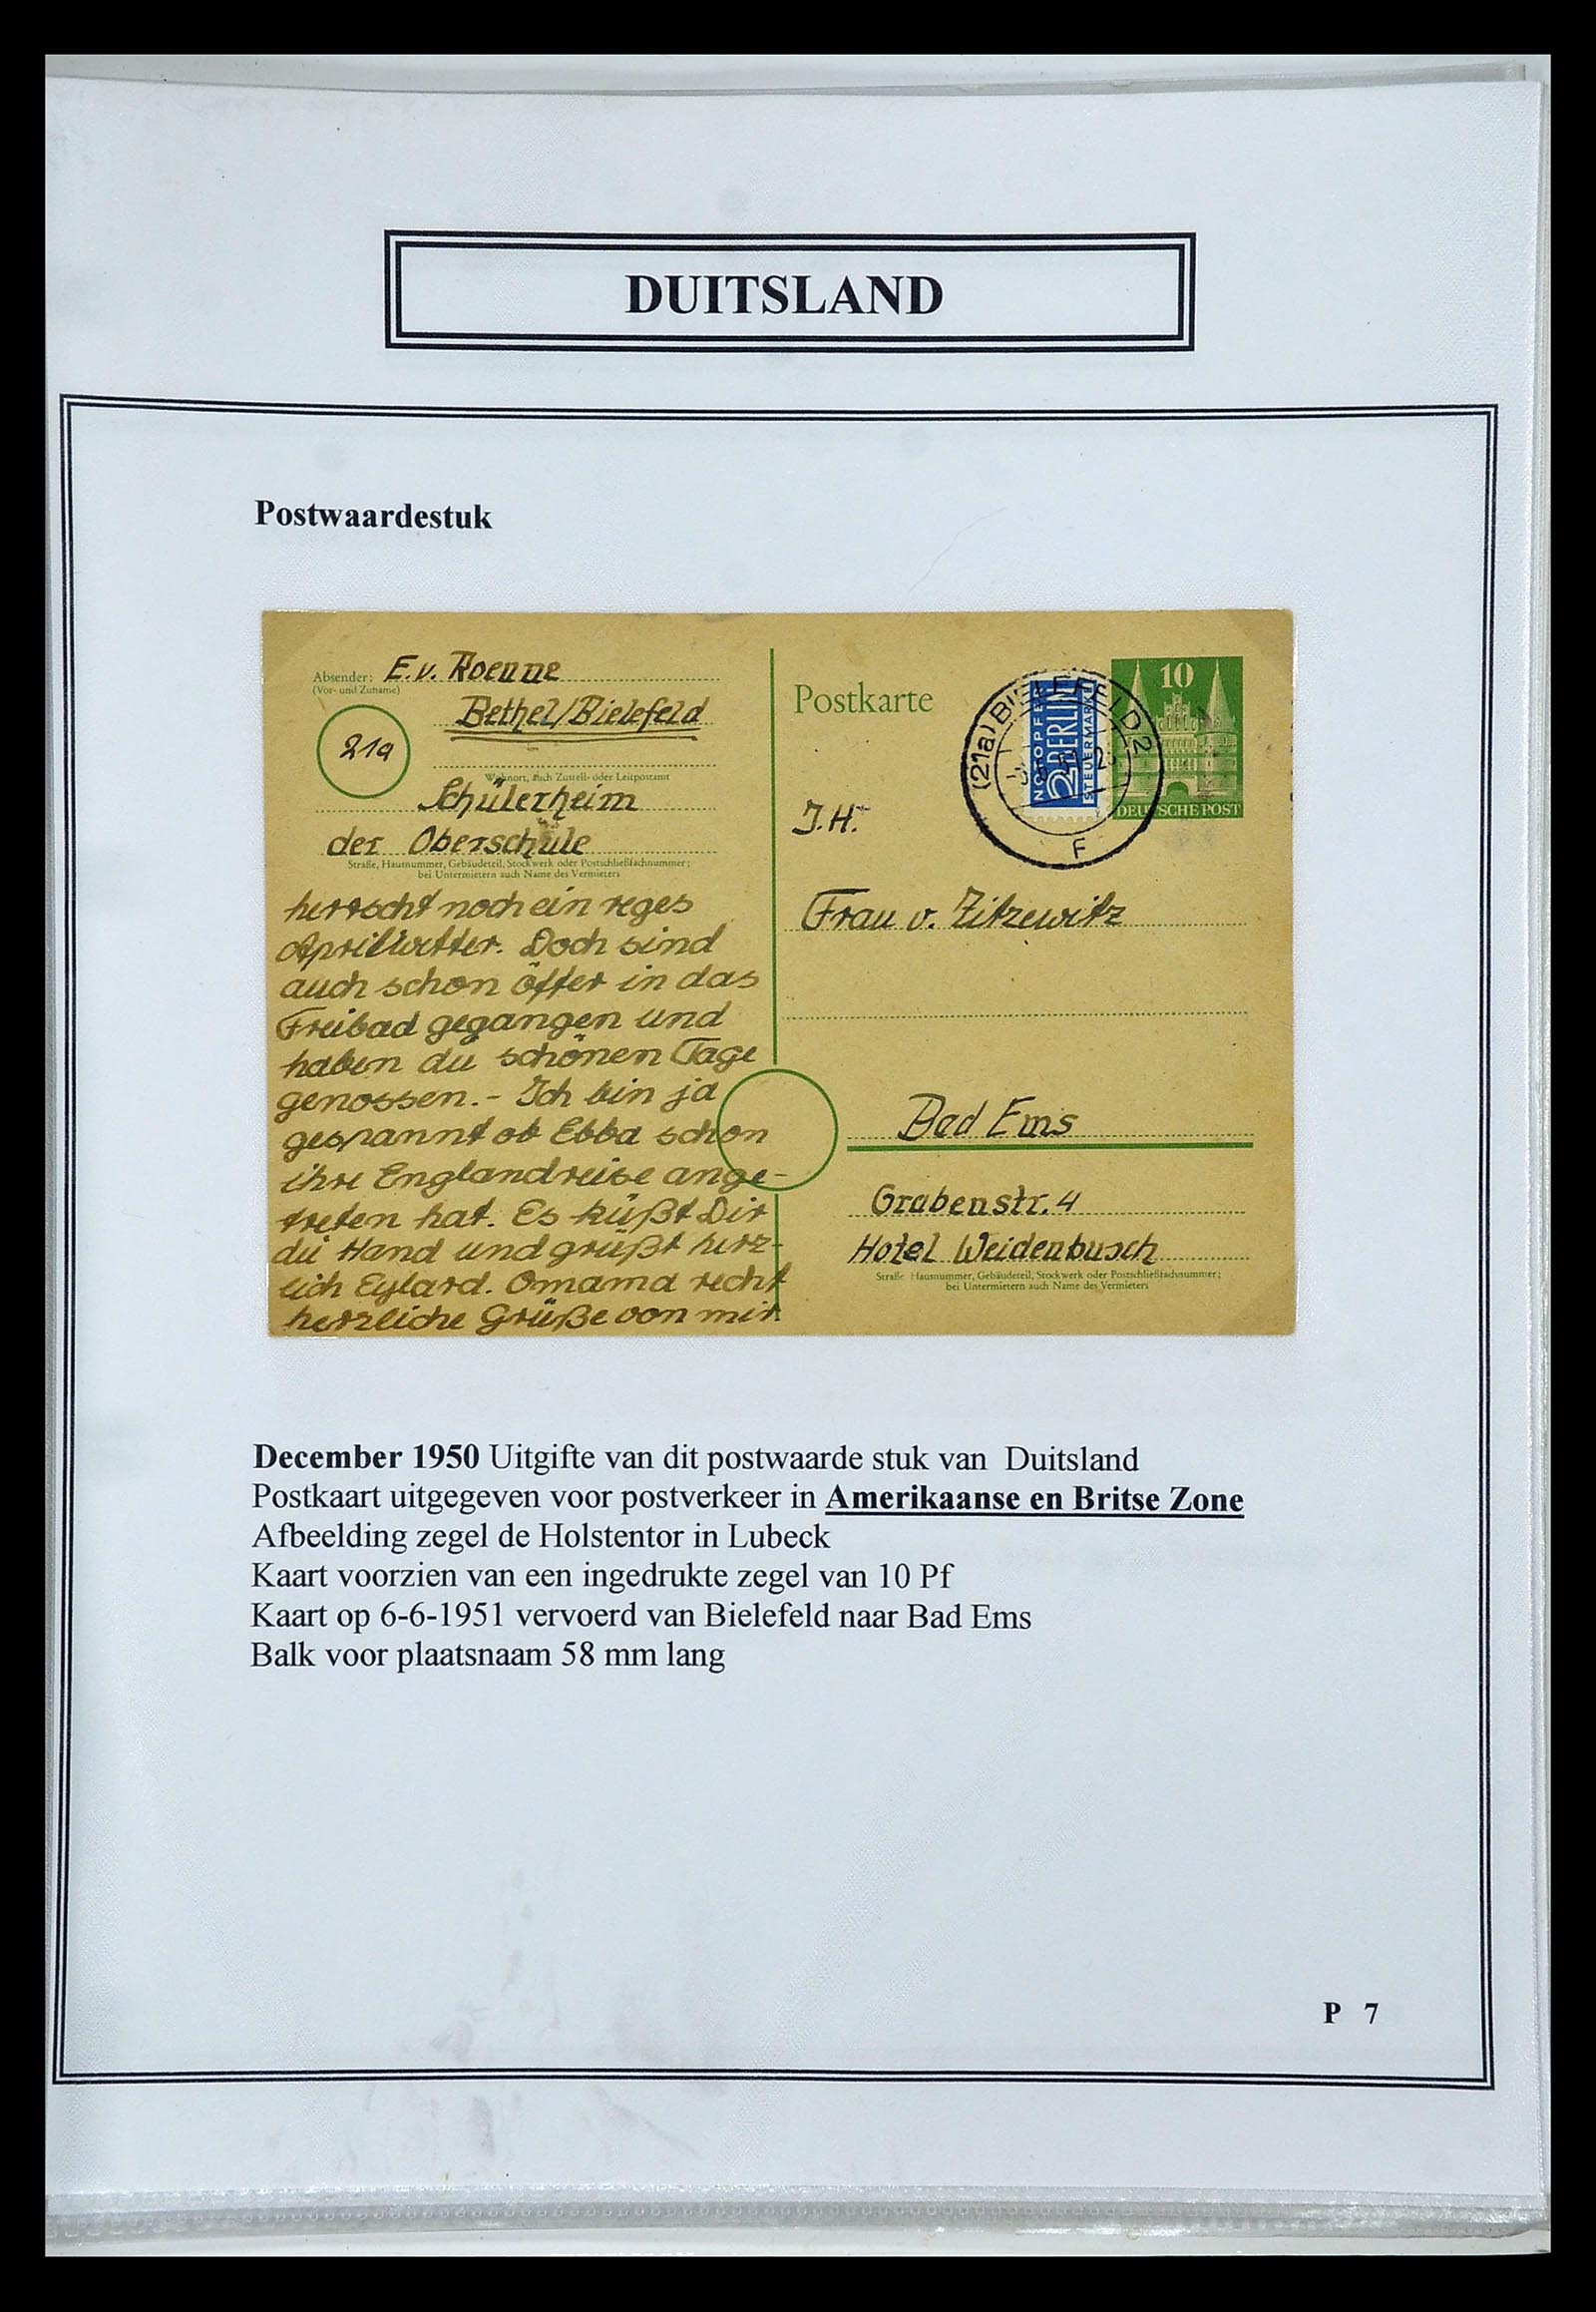 DUITSLAND
Postwaardestuk
Absender: E. v. Roenne
(Vor- und Zuname)
Bethel/Bielefeld
21a
Wohnort, auch Zustell- oder Leitpostamt
Schülerheim
der Oberschule
Straße, Hausnummer, Gebäudeteil, Stockwerk oder Postschließfachnummer;
bei Untermietern auch Name des Vermieters
herrscht noch ein reges
Aprilwetter. Doch sind
auch schon öfter in das
Freibad gegangen und
haben die schönen Tage
genossen. - Ich bin ja
gespannt ob Ebba schon
ihre Englandreise ange-
treten hat. Es küßt Dir
die Hand und grüßt herz-
lich Eylard. Omama recht
herzliche Grüße von mir
Postkarte
(21a) BIELEFELD 2
F
NOTOPFER
2 BERLIN
STEUERMARKE
10
DEUTSCHE POST
I.H.
Frau v. Zitzewitz
Bad Ems
Grabenstr. 4
Hotel Weidenbusch
Straße, Hausnummer, Gebäudeteil, Stockwerk oder Postschließfachnummer;
bei Untermietern auch Name des Vermieters
December 1950 Uitgifte van dit postwaarde stuk van Duitsland
Postkaart uitgegeven voor postverkeer in Amerikaanse en Britse Zone
Afbeelding zegel de Holstentor in Lubeck
Kaart voorzien van een ingedrukte zegel van 10 Pf
Kaart op 6-6-1951 vervoerd van Bielefeld naar Bad Ems
Balk voor plaatsnaam 58 mm lang
P 7